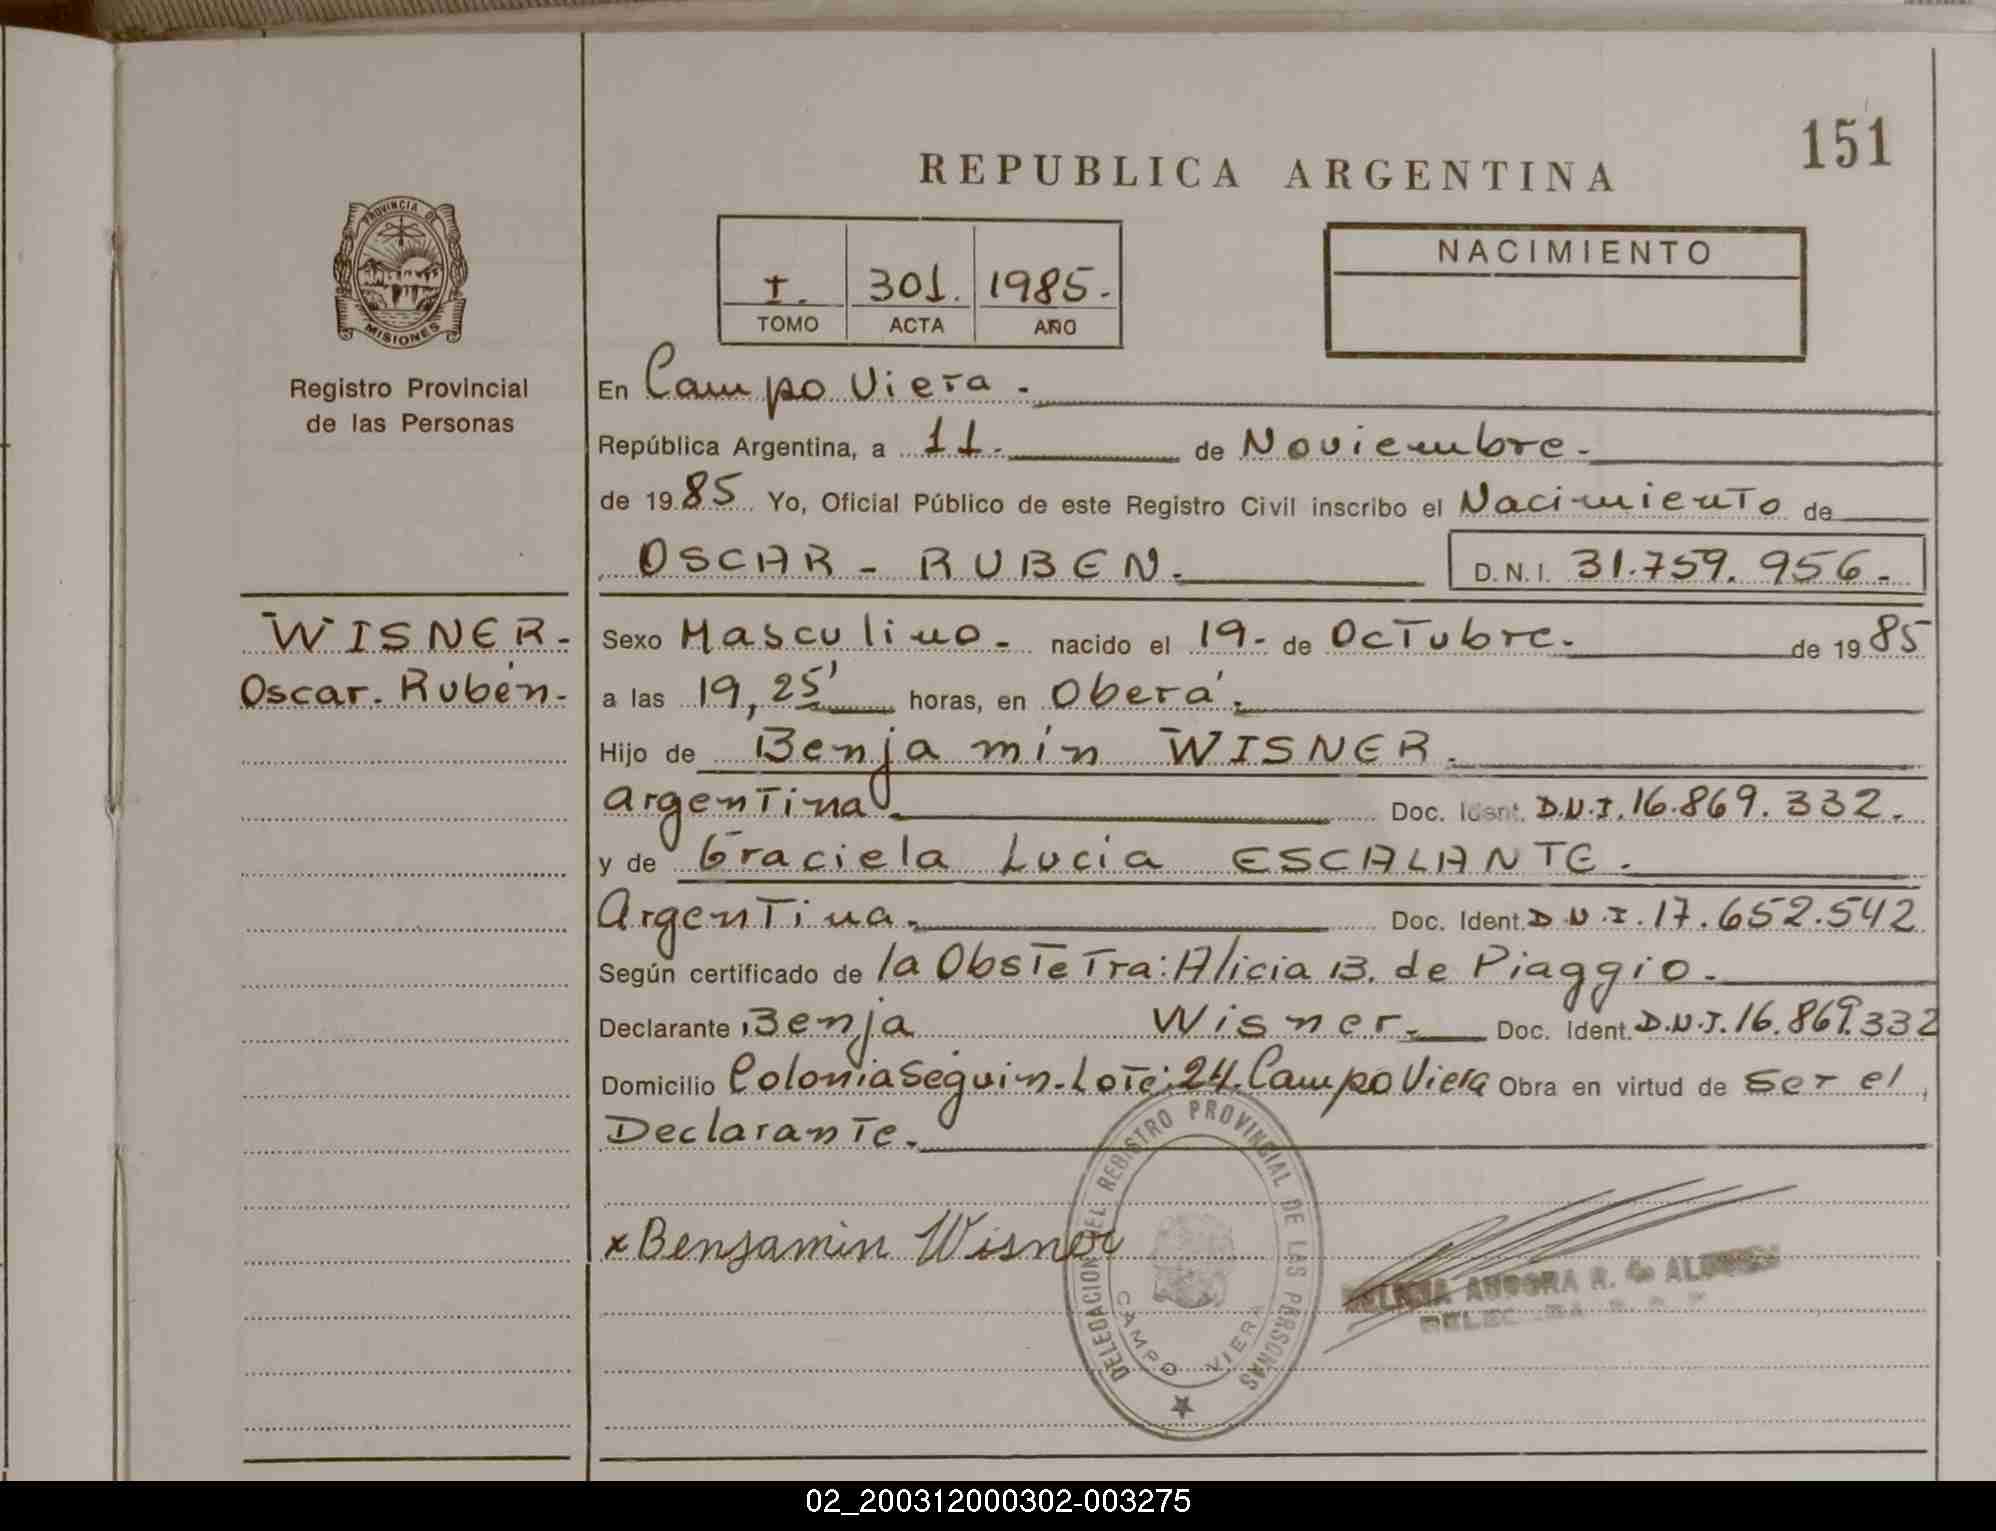 151
REPUBLICA ARGENTINA
PROVINCIA DE
MISIONES
Registro Provincial
de las Personas
I. 301. 1985.-
TOMO ACTA AÑO
NACIMIENTO
En Campo Viera.
República Argentina, a 11.- de Noviembre.-
de 1985 Yo, Oficial Público de este Registro Civil inscribo el Nacimiento de
OSCAR - RUBEN.- D.N.I. 31.759.956.-
WISNER.-
Oscar. Rubén.-
Sexo Masculino.- nacido el 19.- de Octubre.- de 1985
a las 19,25' horas, en Oberá.
Hijo de Benjamín WISNER.
argentina Doc. Ident. D.N.I. 16.869.332.
y de Graciela Lucia ESCALANTE.
Argentina. Doc. Ident. D.N.I. 17.652.542
Según certificado de la Obstetra: Alicia B. de Piaggio.
Declarante Benja Wisner.- Doc. Ident. D.N.I. 16.869.332
Domicilio Colonia Seguin. Lote: 24. Campo Viera Obra en virtud de ser el
Declarante.
x Benjamin Wisner
DELEGACION DEL REGISTRO PROVINCIAL DE LAS PERSONAS
CAMPO VIERA
AURORA R. de
02_200312000302-003275